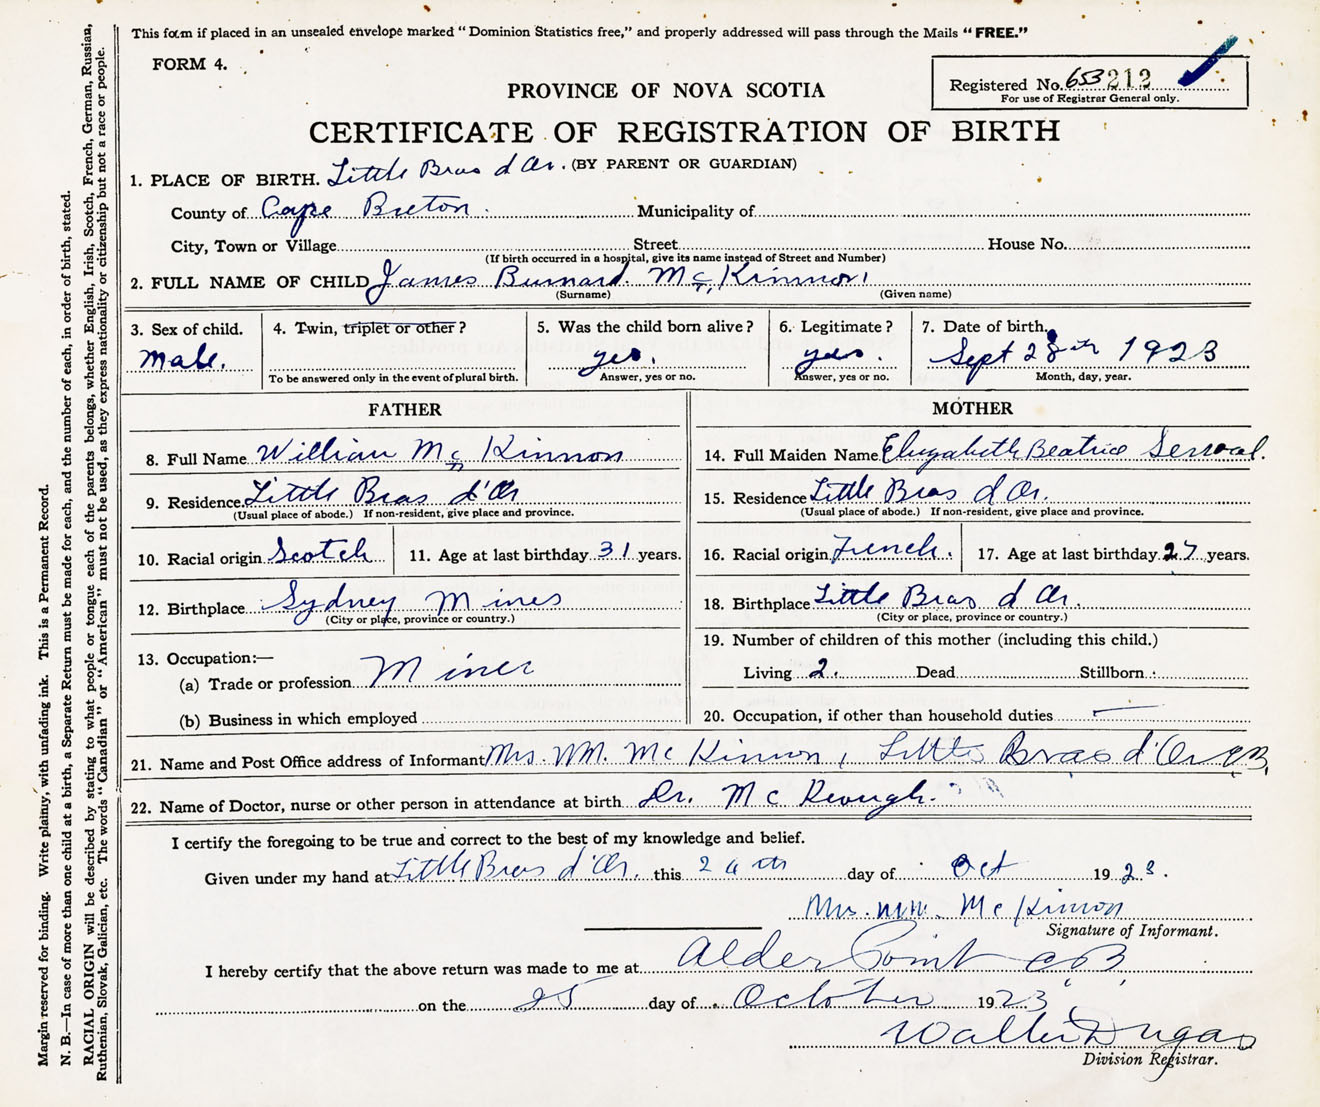 This form if placed in an unsealed envelope marked "Dominion Statistics free," and properly addressed will pass through the Mails "FREE."
FORM 4.
Registered No. 653212
For use of Registrar General only.
PROVINCE OF NOVA SCOTIA
CERTIFICATE OF REGISTRATION OF BIRTH
(BY PARENT OR GUARDIAN)
1. PLACE OF BIRTH. Little Bras d'Or.
County of Cape Breton. Municipality of
City, Town or Village Street House No.
(If birth occurred in a hospital, give its name instead of Street and Number)
2. FULL NAME OF CHILD James Burnard. Mc Kinnon
(Surname) (Given name)
3. Sex of child. 4. Twin, triplet or other? 5. Was the child born alive? 6. Legitimate? 7. Date of birth.
male. yes. yes. Sept 28th 1923
To be answered only in the event of plural birth. Answer, yes or no. Answer, yes or no. Month, day, year.
FATHER
8. Full Name William Mc Kinnon
9. Residence. Little Bras d'Or
(Usual place of abode.) If non-resident, give place and province.
10. Racial origin Scotch 11. Age at last birthday 31 years.
12. Birthplace Sydney Mines
(City or place, province or country.)
13. Occupation:—
(a) Trade or profession Miner
(b) Business in which employed
MOTHER
14. Full Maiden Name Elizabeth Beatrice
15. Residence Little Bras d Or.
(Usual place of abode.) If non-resident, give place and province.
16. Racial origin French. 17. Age at last birthday 27 years.
18. Birthplace Little Bras d Or.
(City or place, province or country.)
19. Number of children of this mother (including this child.)
Living 2. Dead Stillborn
20. Occupation, if other than household duties —
21. Name and Post Office address of Informant Mrs. WM. Mc Kinnon, Little Bras d'Or CB,
22. Name of Doctor, nurse or other person in attendance at birth Dr. Mc Keough.
I certify the foregoing to be true and correct to the best of my knowledge and belief.
Given under my hand at Little Bras d'Or, this 24th day of Oct 1923.
Mrs. WM. Mc Kinnon
Signature of Informant.
I hereby certify that the above return was made to me at Alder Point CB,
on the 25 day of October 1923
Walter Dugas
Division Registrar.
Margin reserved for binding. Write plainly, with unfading ink. This is a Permanent Record.
N. B.—In case of more than one child at a birth, a Separate Return must be made for each, and the number of each, in order of birth, stated.
RACIAL ORIGIN will be described by stating to what people or tongue each of the parents belongs, whether English, Irish, Scotch, French, German, Russian,
Ruthenian, Slovak, Galician, etc. The words "Canadian" or "American" must not be used, as they express nationality or citizenship but not a race or people.